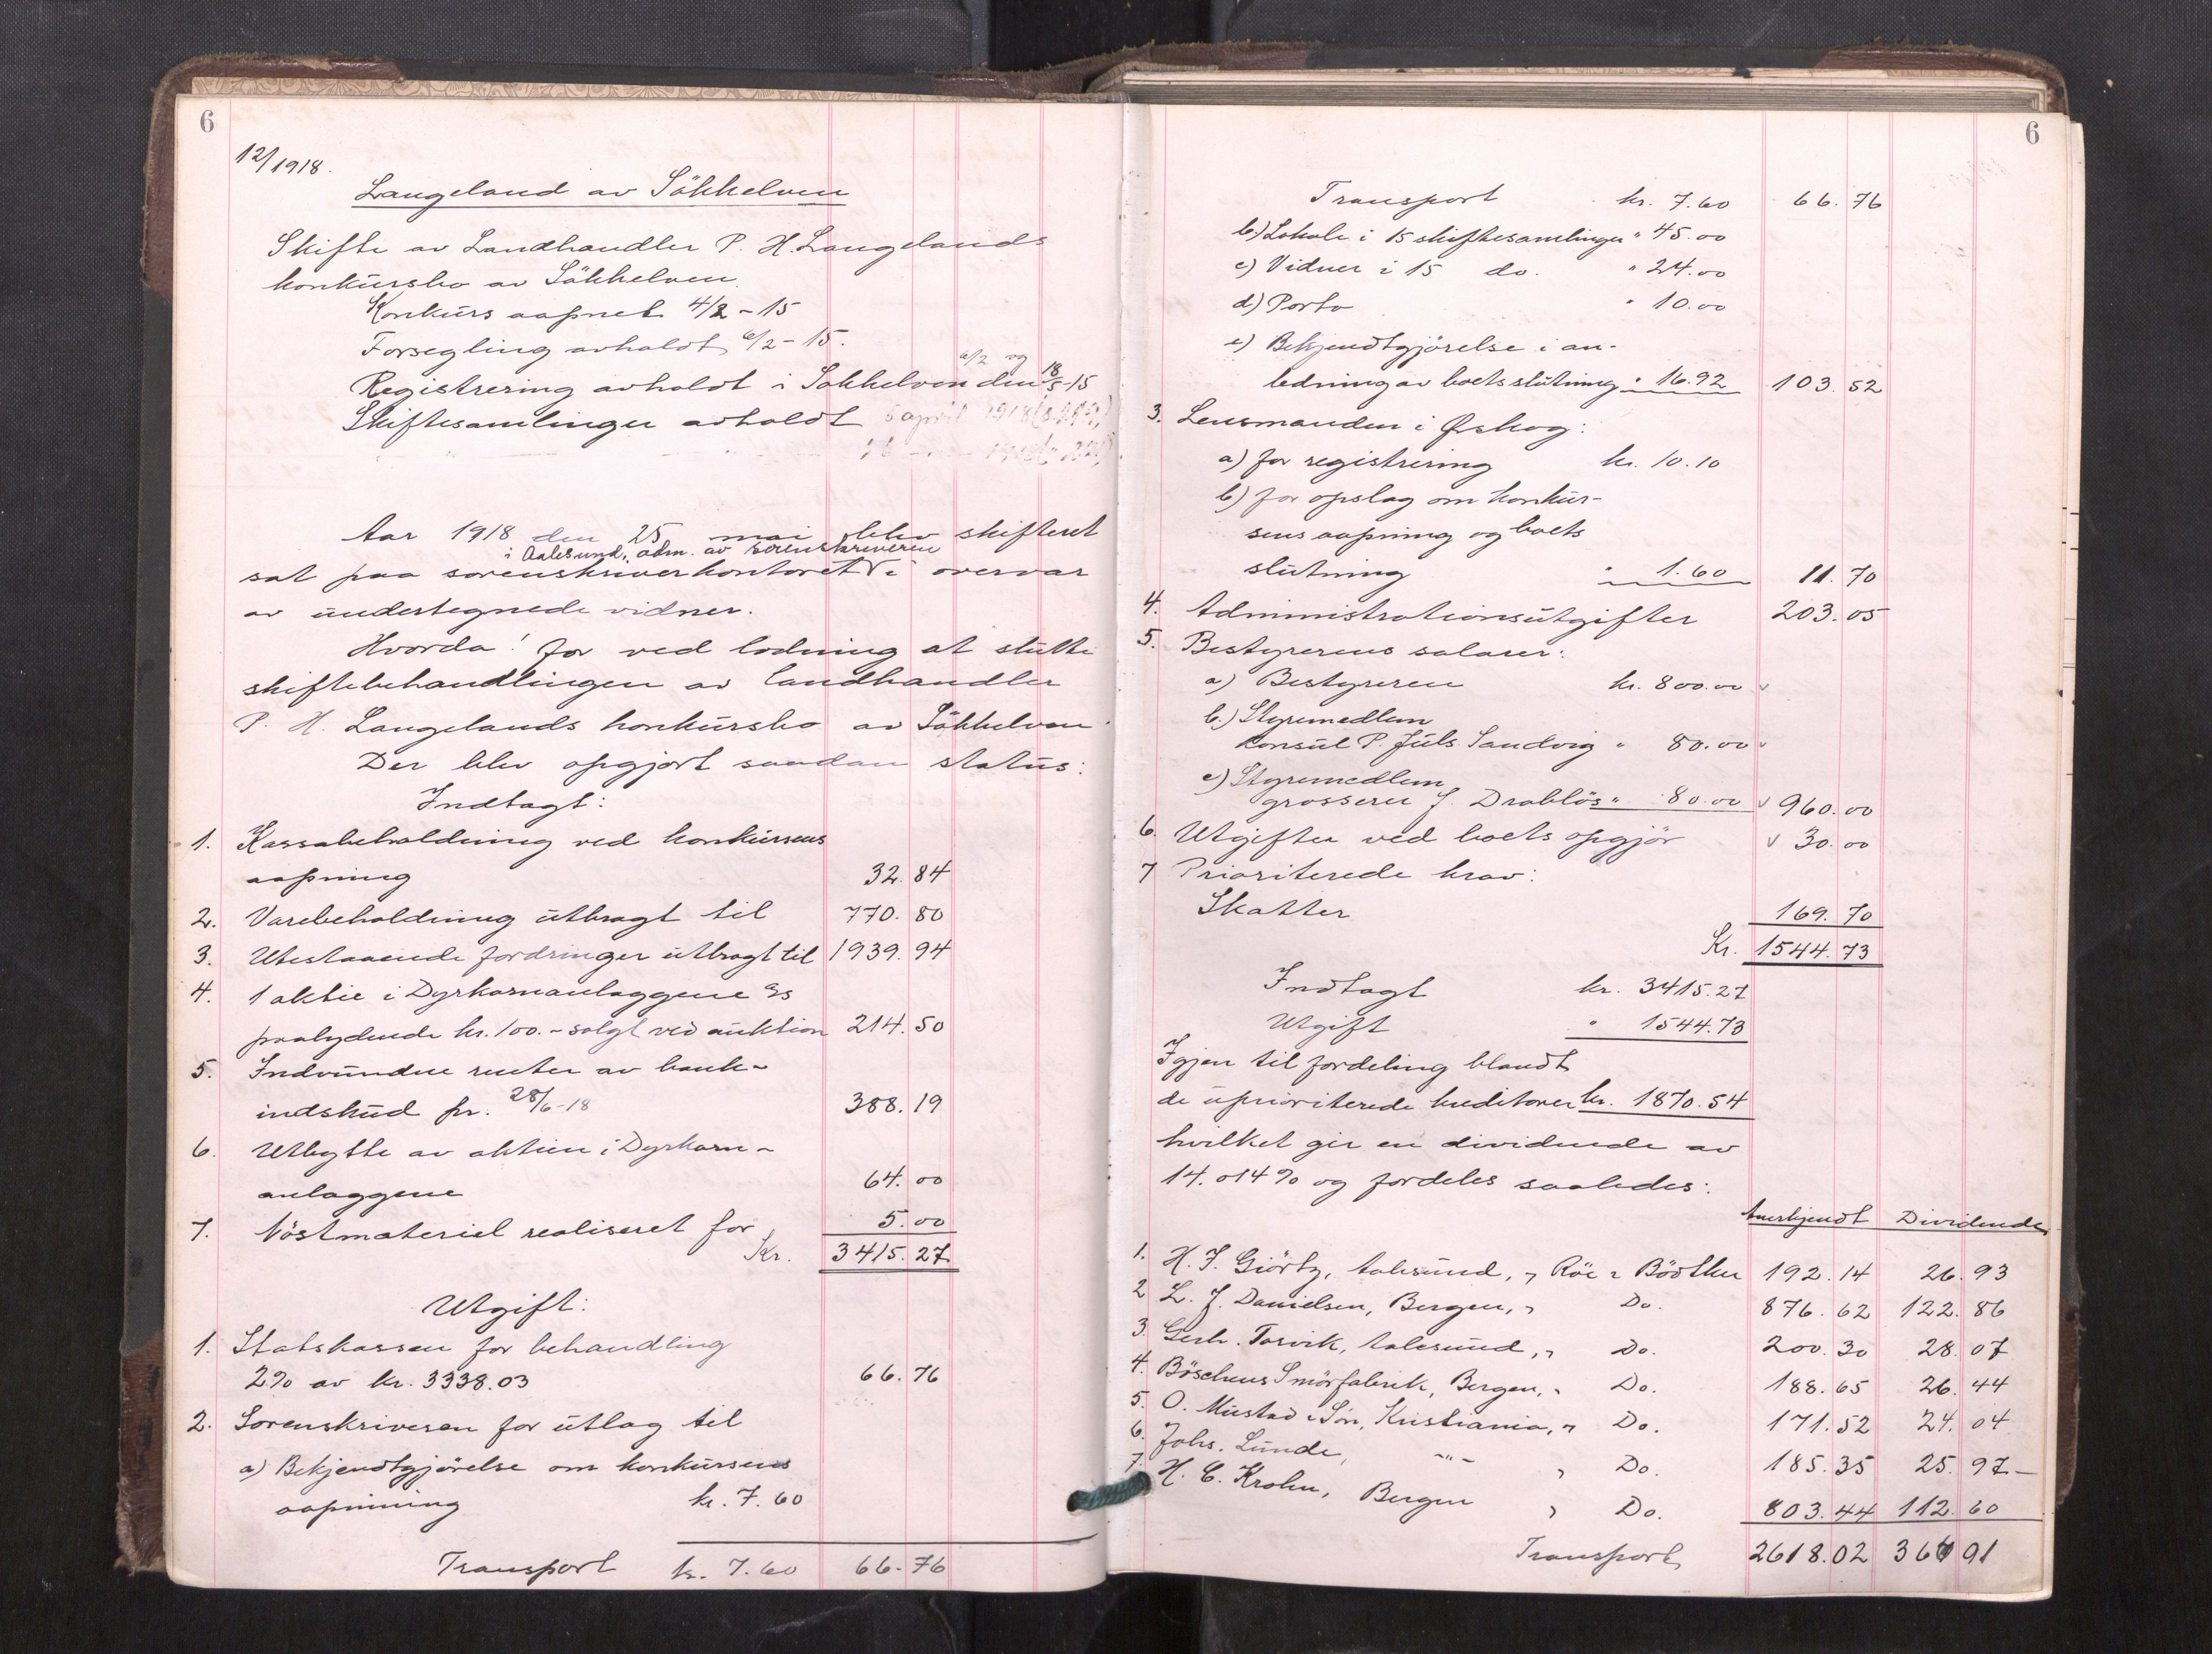 6
12/1918.
Langeland av Sökkelven
Skifte av Landhandler P. H. Langelands
konkursbo av Sökkelven.
Konkurs aapnet 4/2 - 15
Forsegling avholdt 6/2 - 15.
6/2 og
Registrering avholdt i Sökkelven den 18/5-15
Skiftesamlinger avholdt 5 april 1918
Aar 1918 den 25 mai blev skifteret
i Aalesund, adm. av sorenskriveren
sat paa sorenskriverkontoret i overvær
av undertegnede vidner.
Hvorda! for ved lodning at slutte
skiftebehandlingen av landhandler
P. H. Langelands konkursbo av Sökkelven.
Der blev opgjort saadan status:
Indtægt:
1. Kassabeholdning ved konkursens
aapning 32.84
2. Varebeholdning utbragt til 770.80
3. Utestaaende fordringer utbragt til 1939.94
4. 1 aktie i Dyrkornanlæggene A/s
paalydende kr. 100.- solgt ved auktion 214.50
5. Indvundne renter av bank-
indskud pr. 28/6-18 388.19
6. Utbytte av aktien i Dyrkorn-
anlæggene 64.00
7. Nöstmateriel realiseret for 5.00
Kr. 3415.27
Utgift:
1. Statskassen for behandling
2% av kr. 3338.03 66.76
2. Sorenskriveren for utlæg til
a) Bekjendtgjörelse om konkursens
aapning kr. 7.60
Transport kr. 7.60 66.76
6
Transport kr. 7.60 66.76
b.) Lokale i 15 skiftesamlinger " 45.00
c) Vidner i 15 do. " 24.00
d) Porto " 10.00
e) Bekjendtgjörelse i an-
ledning av boets slutning " 16.92 103.52
3. Lensmanden i Ørskog:
a) for registrering kr. 10.10
b) for opslag om konkur-
sens aapning og boets
slutning " 1.60 11.70
4. Administrationsutgifter 203.05
5. Bestyrerens salærer:
a) Bestyreren kr. 800.00 v
b.) Styremedlem
konsul P. Juls. Sandvig " 80.00 v
c) Styremedlem
grosserer J. Drablös " 80.00 v 960.00
6. Utgifter ved boets opgjör v 30.00
7 Prioriterede krav:
Skatter 169.70
Kr. 1544.73
Indtægt kr. 3415.27
Utgift " 1544.73
Igjen til fordeling blandt
de uprioriterede kreditorer kr. 1870.54
hvilket gir en dividende av
14.014% og fordeles saaledes:
Anerkjendt Dividende
1. H. J. Giörtz, Aalesund, Röe & Bödtker 192.14 26.93
2 L. J. Danielsen, Bergen, Do. 876.62 122.86
3. Gerh. Torvik, Aalesund, Do. 200.30 28.07
4. Böschens Smörfabrik, Bergen, Do. 188.65 26.44
5. O. Mustad & Sön, Kristiania, Do. 171.52 24.04
6. Johs. Lunde, -"- Do. 185.35 25.97-
7. H. C. Krohn, Bergen Do. 803.44 112.60
Transport 2618.02 366 91